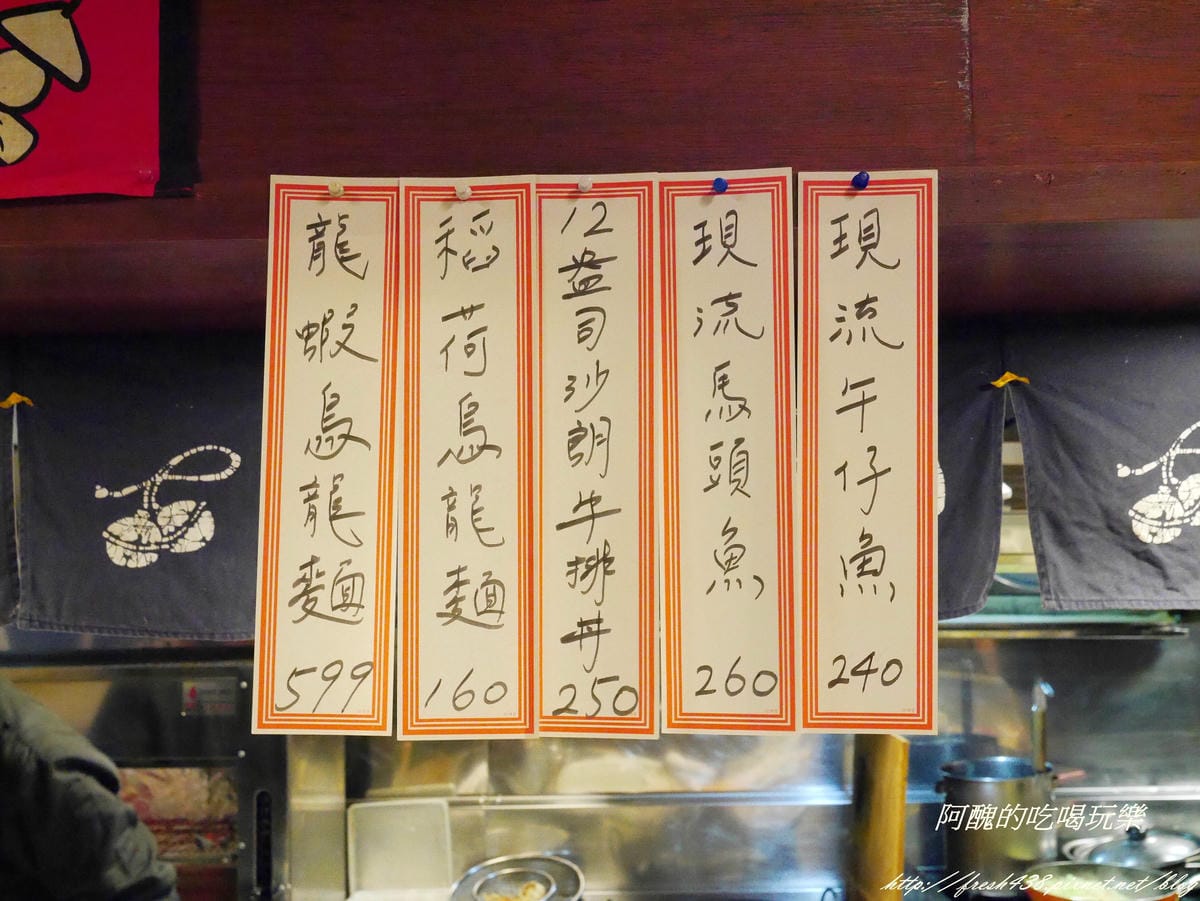 現流午仔魚 240
現流馬頭魚 260
12盎司沙朗牛排丼 250
稻荷烏龍麵 160
龍蝦烏龍麵 599
阿醜的吃喝玩樂
http://fresh438.pixnet.net/blog